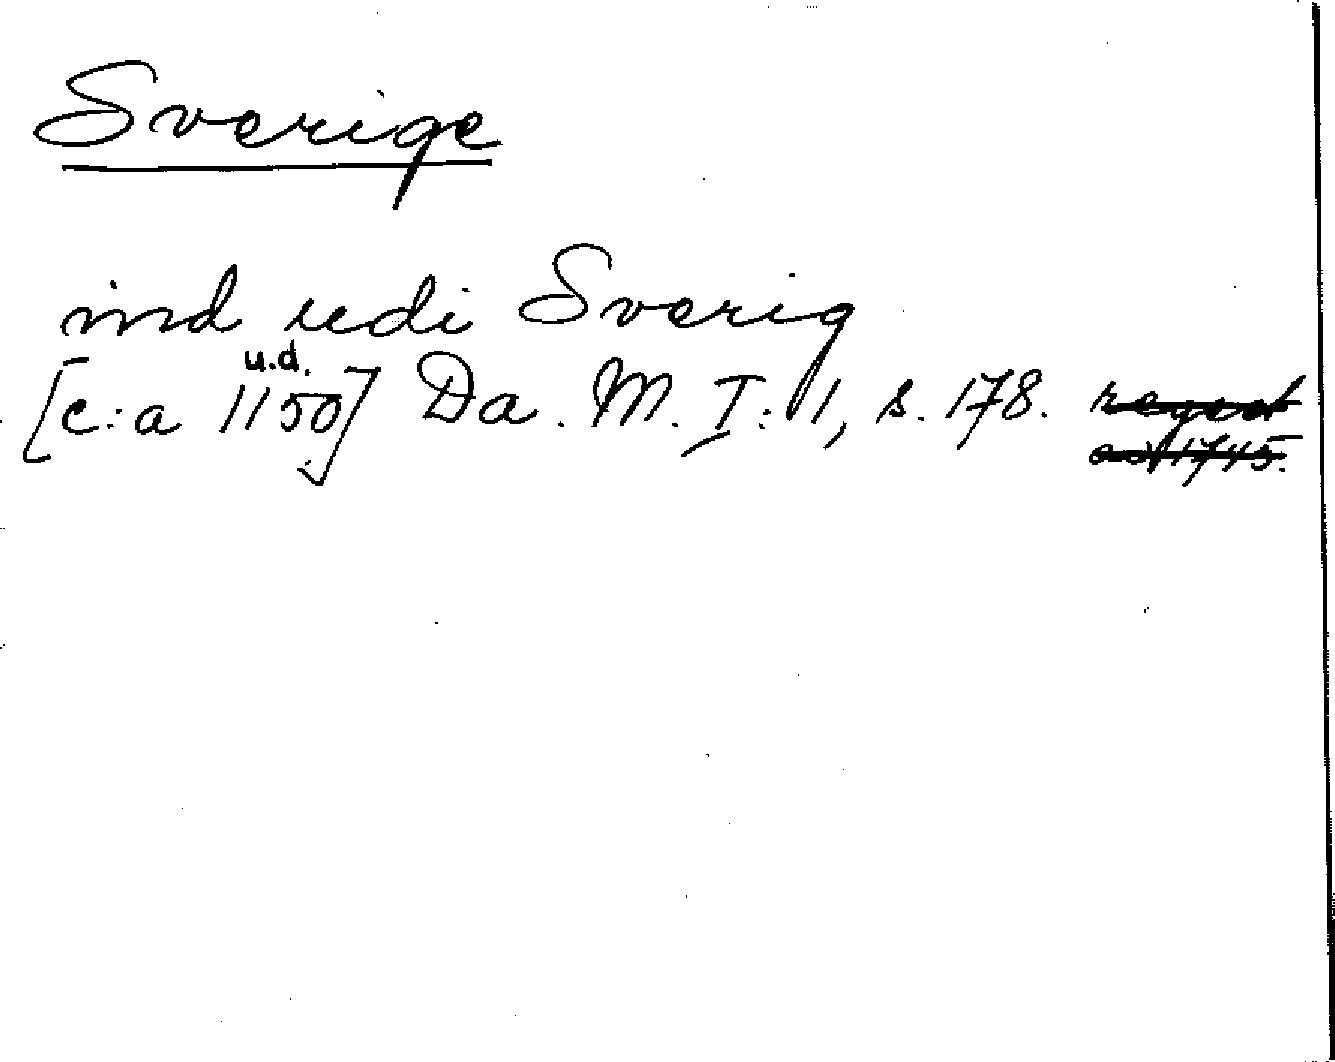 Sverige
ind udi Sverig
u.d.
[c:a 1150] Da. M. I: 1, s. 178. regest
ad 1745.